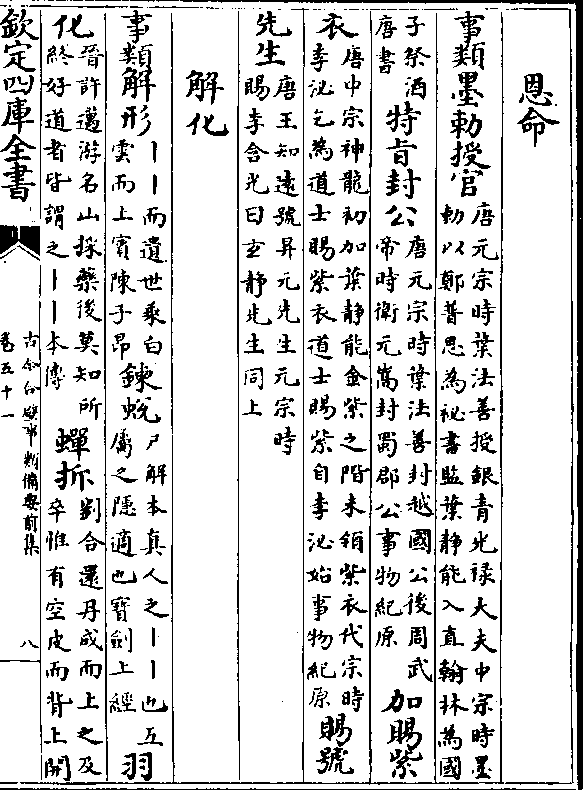 恩命
事類墨勅授官唐元宗時葉法善授銀青光禄大夫中宗時墨勅以鄭普思為祕書監葉静能入直翰林為國
子祭酒唐書特旨封公唐元宗時葉法善封越國公後周武帝時衛元嵩封蜀郡公事物紀原加賜紫
衣唐中宗神龍初加葉静能金紫之階未領紫衣代宗時李泌乞為道士賜紫衣道士賜紫自李泌始事物紀原賜號
先生唐王知遠號昇元先生元宗時賜李含光曰玄静先生同上
解化
事類解形丨丨而遺世乘白雲而上賓陳子昂鍊蛻尸解本真人之丨丨也互屬之隱適也寶劍上經羽
化晉許邁游名山採藥後莫知所終好道者皆謂之丨丨本傳蟬拆劉合還丹成而上之及卒惟有空皮而背上開
欽定四庫全書
古今合璧事類備要前集
卷五十一
八